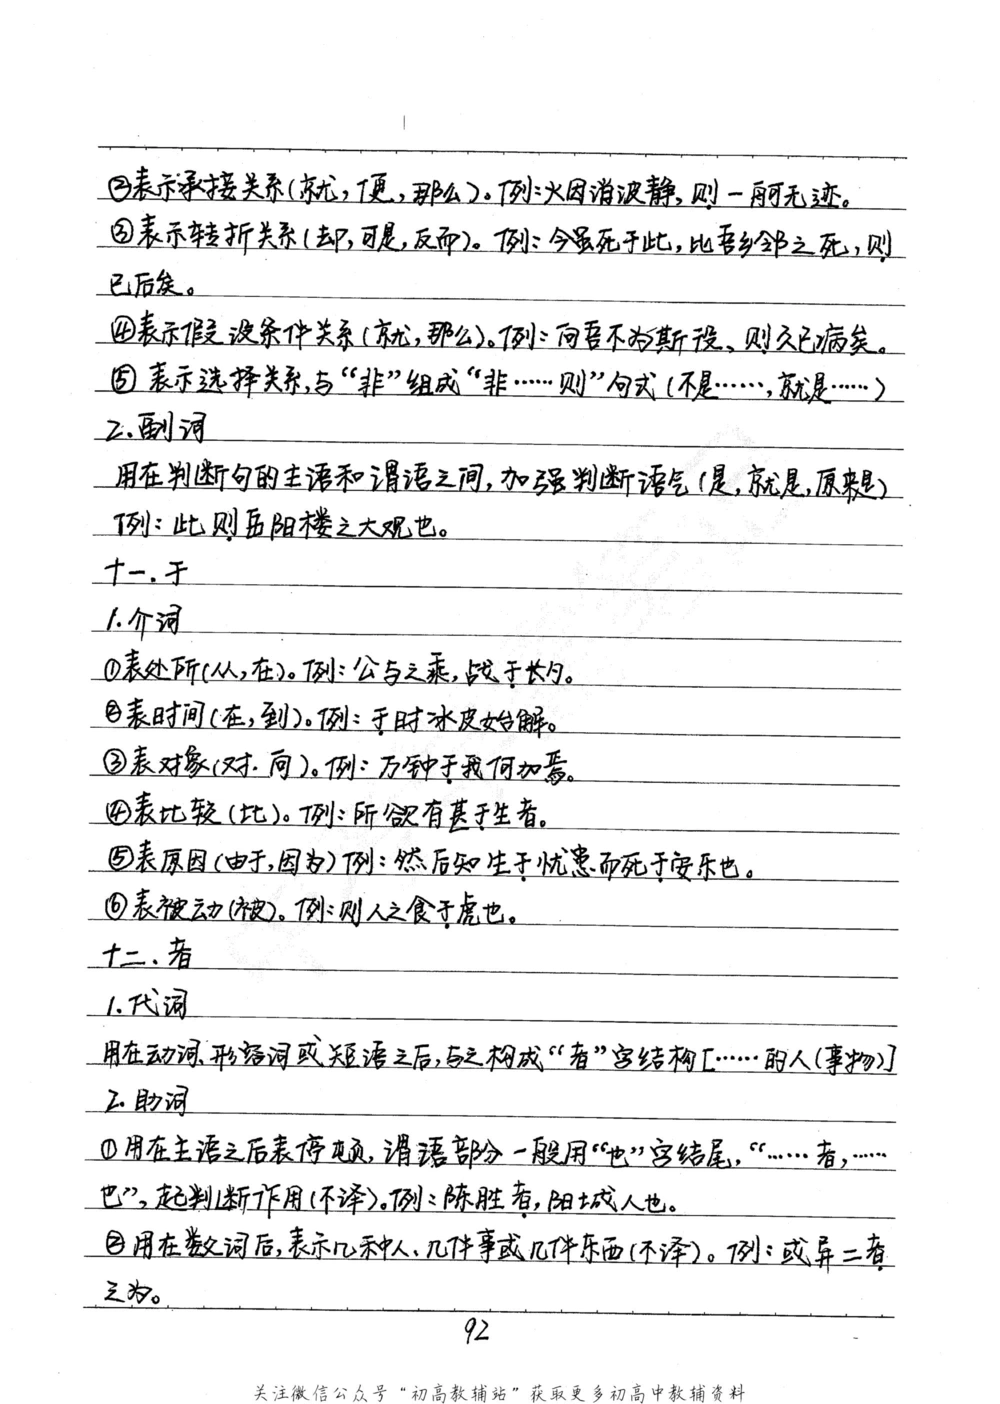 ②表示承接关系(就,便,那么)。例:火因消波静,则一舸无迹。
③表示转折关系(却,可是,反而)。例:今虽死于此,比吾乡邻之死,则
已后矣。
④表示假设条件关系(就,那么)。例:向吾不为斯役、则久已病矣。
⑤表示选择关系,与“非”组成“非……则”句式(不是……,就是……)
2.副词
用在判断句的主语和谓语之间,加强判断语气(是,就是,原来是)
例:此则岳阳楼之大观也。
十一.于
1.介词
①表处所(从,在)。例:公与之乘,战于长勺。
②表时间(在,到)。例:于时冰皮始解。
③表对象(对.向)。例:万钟于我何加焉。
④表比较(比)。例:所欲有甚于生者。
⑤表原因(由于,因为)例:然后知生于忧患而死于安乐也。
⑥表被动(被)。例:则人之食于虎也。
十二.者
1.代词
用在动词、形容词或短语之后,与之构成“者”字结构[……的人(事物)]
2.助词
①用在主语之后表停顿,谓语部分一般用“也”字结尾,“……者,……
也”,起判断作用(不译)。例:陈胜者,阳城人也。
②用在数词后,表示几种人、几件事或几件东西(不译)。例:或异二者
之为。
92
关注微信公众号“初高教辅站”获取更多初高中教辅资料